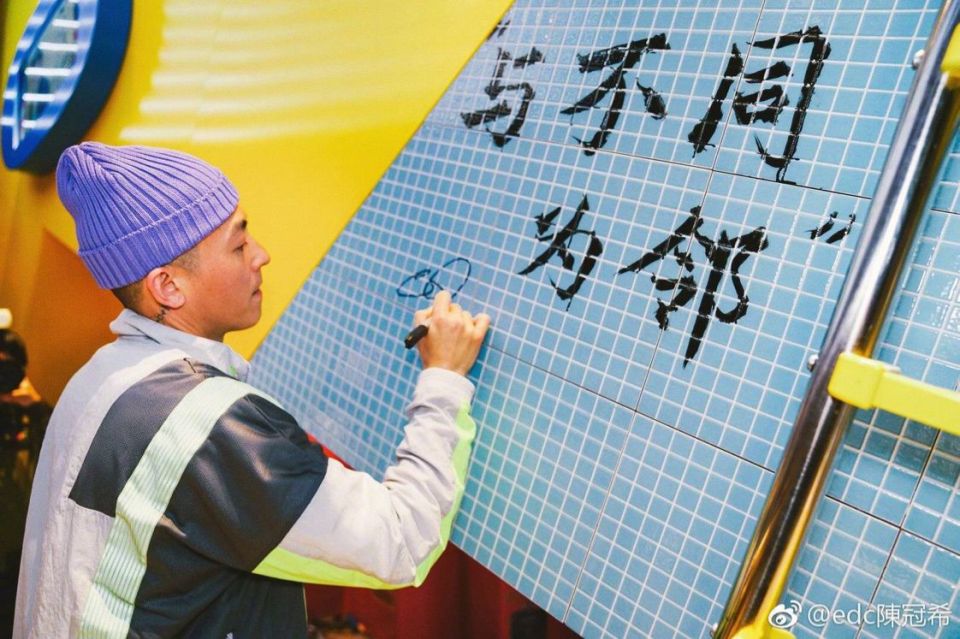 "与不同
为邻"
@edc陳冠希